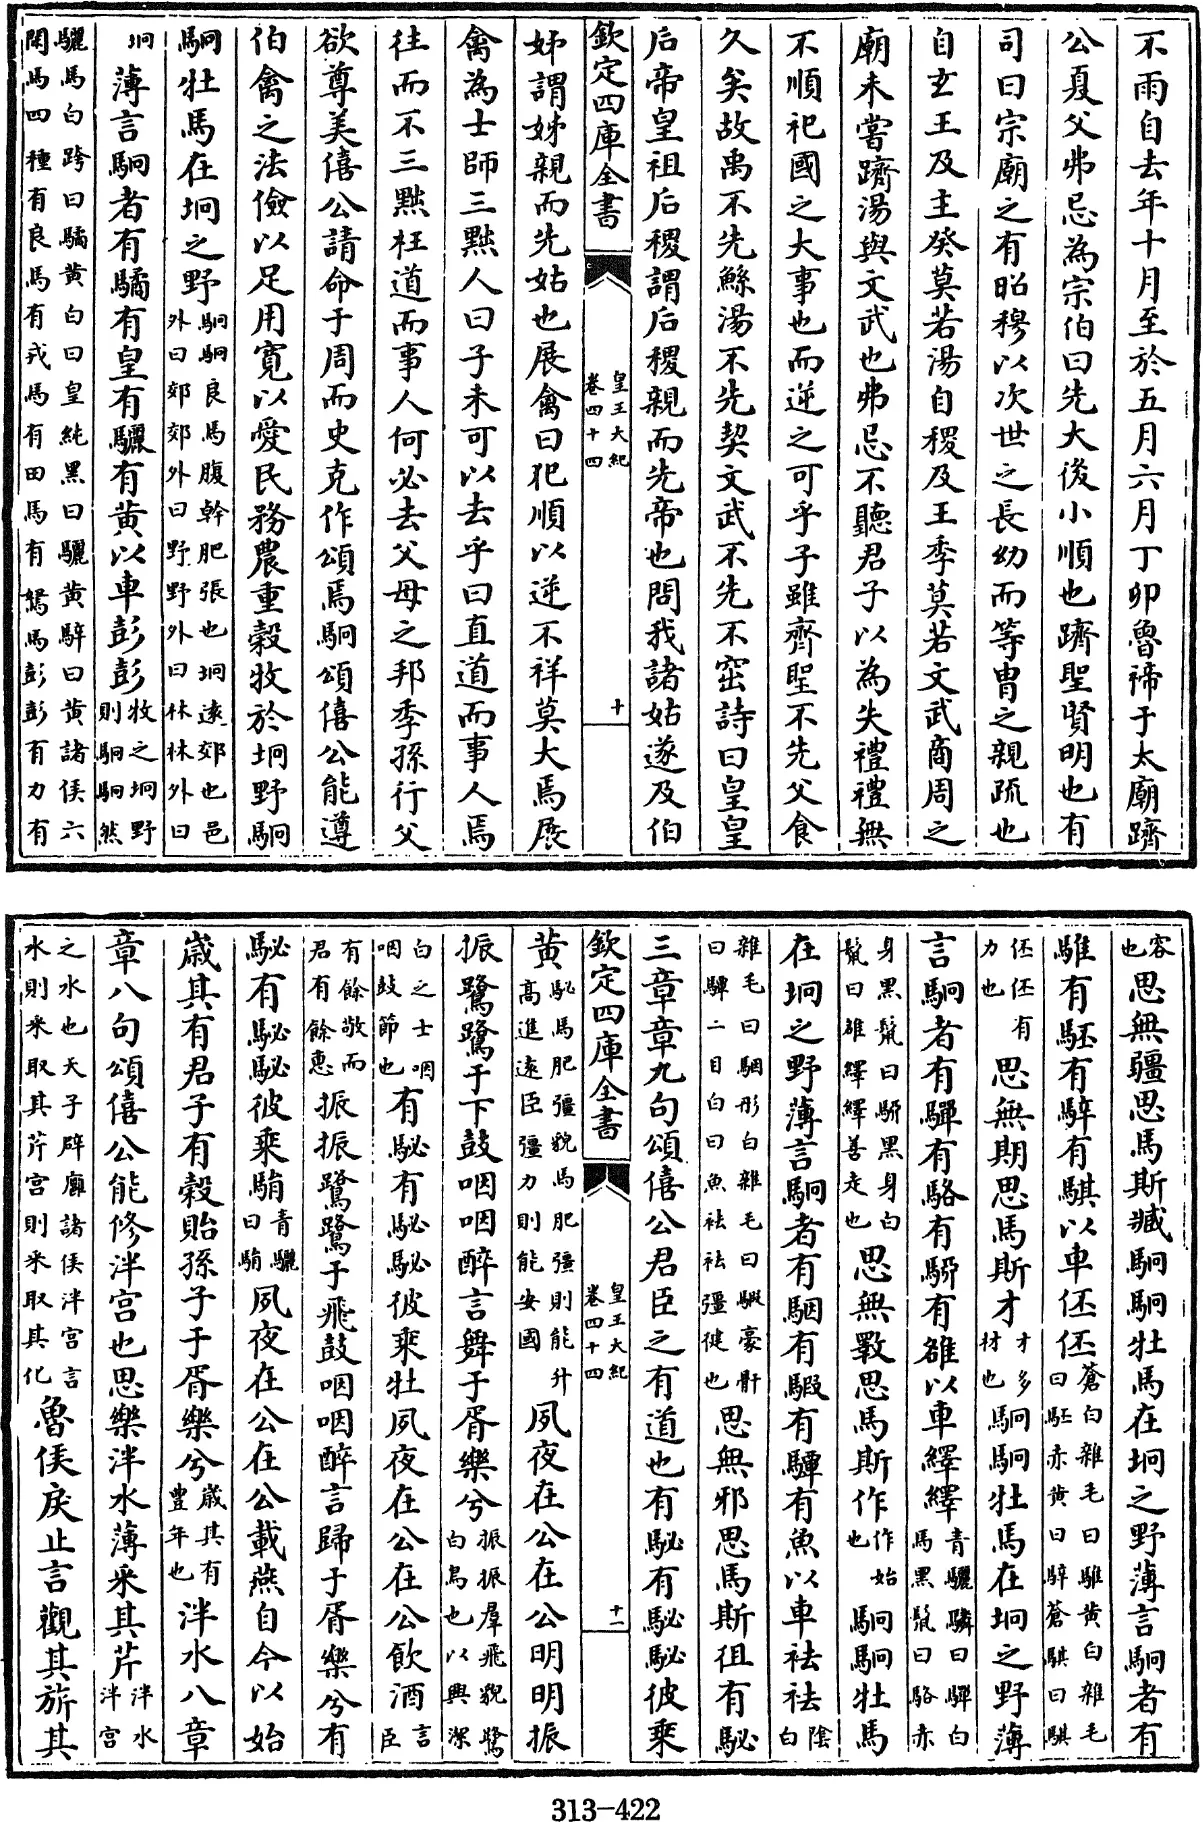 不雨自去年十月至於五月六月丁卯魯禘于太廟躋
公夏父弗忌為宗伯曰先大後小順也躋聖賢明也有
司曰宗廟之有昭穆以次世之長幼而等胄之親疏也
自玄王及主癸莫若湯自稷及王季莫若文武商周之
廟未嘗躋湯與文武也弗忌不聽君子以為失禮禮無
不順祀國之大事也而逆之可乎子雖齊聖不先父食
久矣故禹不先鯀湯不先契文武不先不窋詩曰皇皇
后帝皇祖后稷謂后稷親而先帝也問我諸姑遂及伯
欽定四庫全書 皇王大紀 卷四十四 十
姊謂姊親而先姑也展禽曰犯順以逆不祥莫大焉展
禽為士師三黜人曰子未可以去乎曰直道而事人焉
往而不三黜枉道而事人何必去父母之邦季孫行父
欲尊美僖公請命于周而史克作頌焉駉頌僖公能遵
伯禽之法儉以足用寛以愛民務農重穀牧於坰野駉
駉牡馬在坰之野 駉駉良馬腹幹肥張也坰遠郊也邑 外曰郊郊外曰野野外曰林林外曰
坰 薄言駉者有驈有皇有驪有黄以車彭彭 牧之坰野 則駉駉然
驪馬白跨曰驈黄白曰皇純黑曰驪黄騂曰黄諸侯六 閑馬四種有良馬有戎馬有田馬有駑馬彭彭有力有
容也 思無疆思馬斯臧駉駉牡馬在坰之野薄言駉者有
騅有駓有騂有騏以車伾伾 蒼白雜毛曰騅黄白雜毛 曰駓赤黄曰騂蒼騏曰騏
伾伾有 力也 思無期思馬斯才 才多 材也 駉駉牡馬在坰之野薄
言駉者有驒有駱有駵有雒以車繹繹 青驪驎曰驒白 馬黑鬛曰駱赤
身黑鬛曰駵黑身白 鬛曰雒繹繹善走也 思無斁思馬斯作 作始 也 駉駉牡馬
在坰之野薄言駉者有駰有騢有驔有魚以車袪袪 陰 白
雜毛曰駰彤白雜毛曰騢豪骭 曰驔二目白曰魚袪袪彊健也 思無邪思馬斯徂有駜
三章章九句頌僖公君臣之有道也有駜有駜駜彼乗
欽定四庫全書 皇王大紀 卷四十四 十一
黄 駜馬肥彊貌馬肥彊則能升 高進遠臣彊力則能安國 夙夜在公在公明明振
振鷺鷺于下鼓咽咽醉言舞于胥樂兮 振振羣飛貌鷺 白鳥也以興潔
白之士咽 咽鼓節也 有駜有駜駜彼乗牡夙夜在公在公飲酒 言 臣
有餘敬而 君有餘惠 振振鷺鷺于飛鼓咽咽醉言歸于胥樂兮有
駜有駜駜彼乗駽 青驪 曰駽 夙夜在公在公載燕自今以始
歲其有君子有穀貽孫子于胥樂兮 歲其有 豐年也 泮水八章
章八句頌僖公能修泮宫也思樂泮水薄采其芹 泮水 泮宫
之水也天子辟廱諸侯泮宫言 水則采取其芹宫則采取其化 魯侯戾止言觀其旂其
313-422